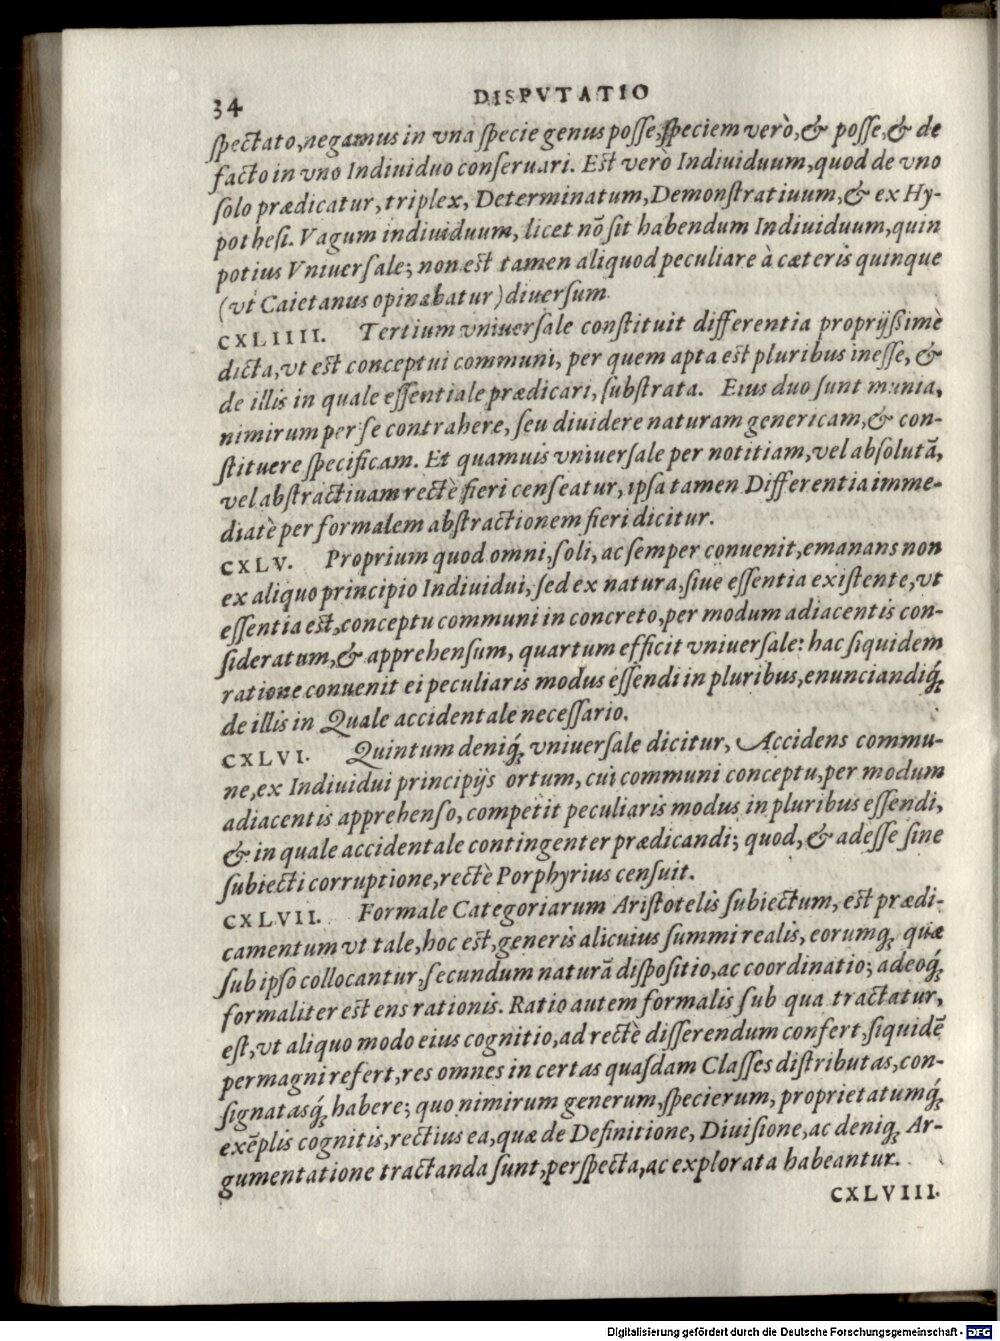 34 DISPVTATIO
spectato, negamus in vna specie genus posse, speciem verò, & posse, & de
facto in vno Indiuiduo conseruari. Est verò Indiuiduum, quod de vno
solo prædicatur, triplex, Determinatum, Demonstratiuum, & ex Hy-
pothesi. Vagum indiuiduum, licet nō sit habendum Indiuiduum, quin
potius Vniuersale; non est tamen aliquod peculiare à cæteris quinque
(vt Caietanus opinabatur) diuersum.
CXLIIII. Tertium vniuersale constituit differentia proprijssimè
dicta, vt est conceptui communi, per quem apta est pluribus inesse, &
de illis in quale essentiale prædicari, substrata. Eius duo sunt munia,
nimirum per se contrahere, seu diuidere naturam genericam, & con-
stituere specificam. Et quamuis vniuersale per notitiam, vel absolutā,
vel abstractiuam rectè fieri censeatur, ipsa tamen Differentia imme-
diatè per formalem abstractionem fieri dicitur.
CXLV. Proprium quod omni, soli, ac semper conuenit, emanans non
ex aliquo principio Indiuidui, sed ex natura, siue essentia existente, vt
essentia est, conceptu communi in concreto, per modum adiacentis con-
sideratum, & apprehensum, quartum efficit vniuersale: hac siquidem
ratione conuenit ei peculiaris modus essendi in pluribus, enunciandiq́;
de illis in Quale accidentale necessario.
CXLVI. Quintum deniq́; vniuersale dicitur, Accidens commu-
ne, ex Indiuidui principijs ortum, cui communi conceptu, per modum
adiacentis apprehenso, competit peculiaris modus in pluribus essendi,
& in quale accidentale contingenter prædicandi; quod, & adesse sine
subiecti corruptione, rectè Porphyrius censuit.
CXLVII. Formale Categoriarum Aristotelis subiectum, est prædi-
camentum vt tale, hoc est, generis alicuius summi realis, eorumq; quæ
sub ipso collocantur, secundum naturā dispositio, ac coordinatio; adeoq́;
formaliter est ens rationis. Ratio autem formalis sub qua tractatur,
est, vt aliquo modo eius cognitio, ad rectè disserendum confert, siquidē
permagni refert, res omnes in certas quasdam Classes distributas, con-
signatasq́; habere; quo nimirum generum, specierum, proprietatumq́;
exēplis cognitis, rectius ea, quæ de Definitione, Diuisione, ac deniq; Ar-
gumentatione tractanda sunt, perspecta, ac explorata habeantur.
CXLVIII.
Digitalisierung gefördert durch die Deutsche Forschungsgemeinschaft - DFG